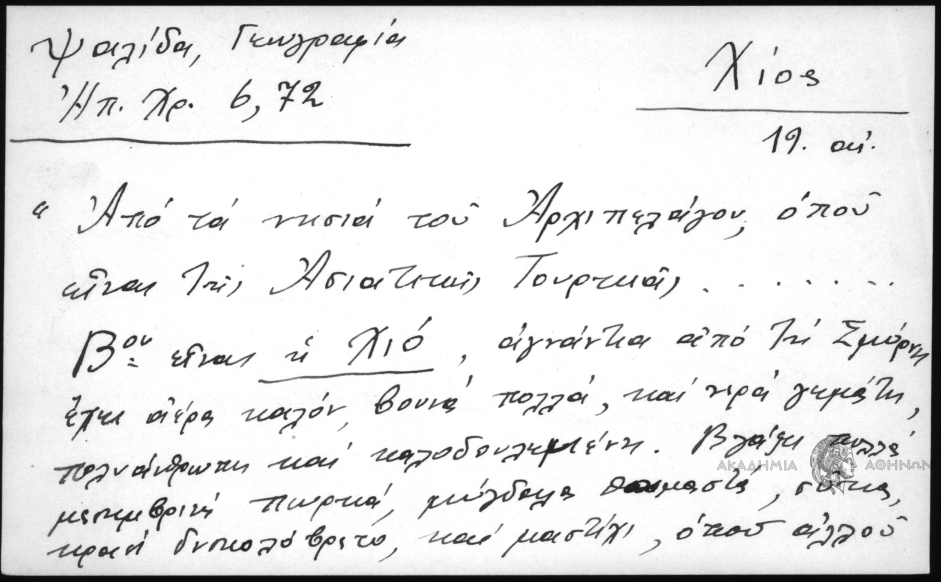 Ψαλίδα, Γεωγραφία
Ἠπ. Χρ. 6, 72
Χίος
19. αἰ.
“ Ἀπό τά νησιά τοῦ Ἀρχιπελάγου, ὁποῦ
εἶναι τῆς Ἀσιατικῆς Τουρκιᾶς . . . . . . .
Βον εἶναι ἡ Χιό, ἀγνάντια ἀπό τή Σμύρνη
ἔχει ἀέρα καλόν, βουνά πολλά, καί νερά γεμάτη,
πολυάνθρωπη καί καλοδουλεμένη. Βγάζει πολλά
μεσημβρινά πωρικά, μύγδαλα θαυμαστά, σῦκα,
κρασί δυσκολόβρετο, καί μαστίχι, ὁποῦ ἀλλοῦ
ΑΚΑΔΗΜΙΑ ΑΘΗΝΩΝ